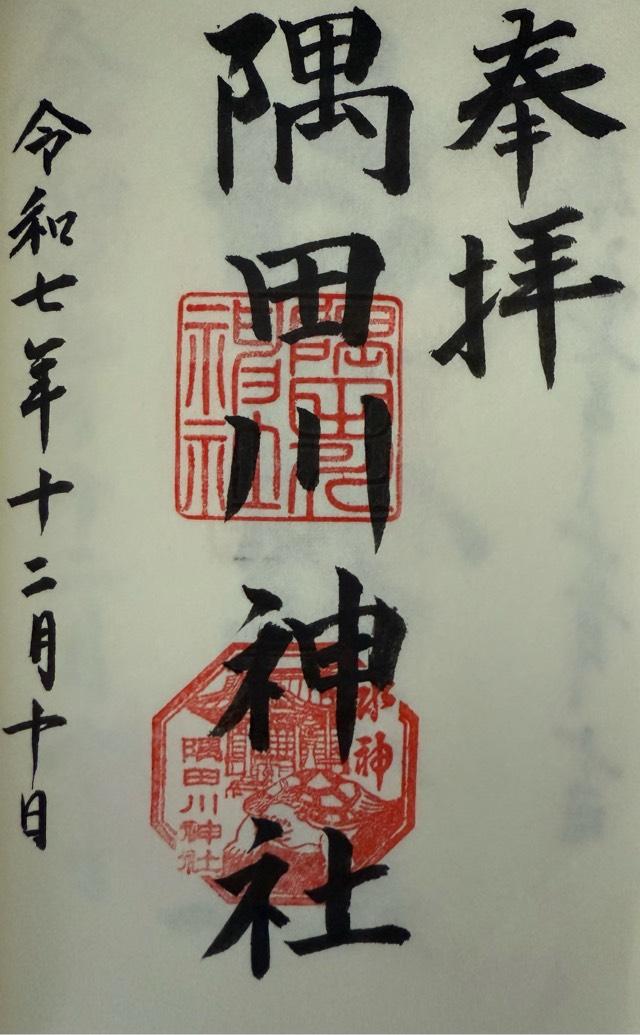 奉拝
隅田川神社
令和七年十二月十日
水神
隅田川神社